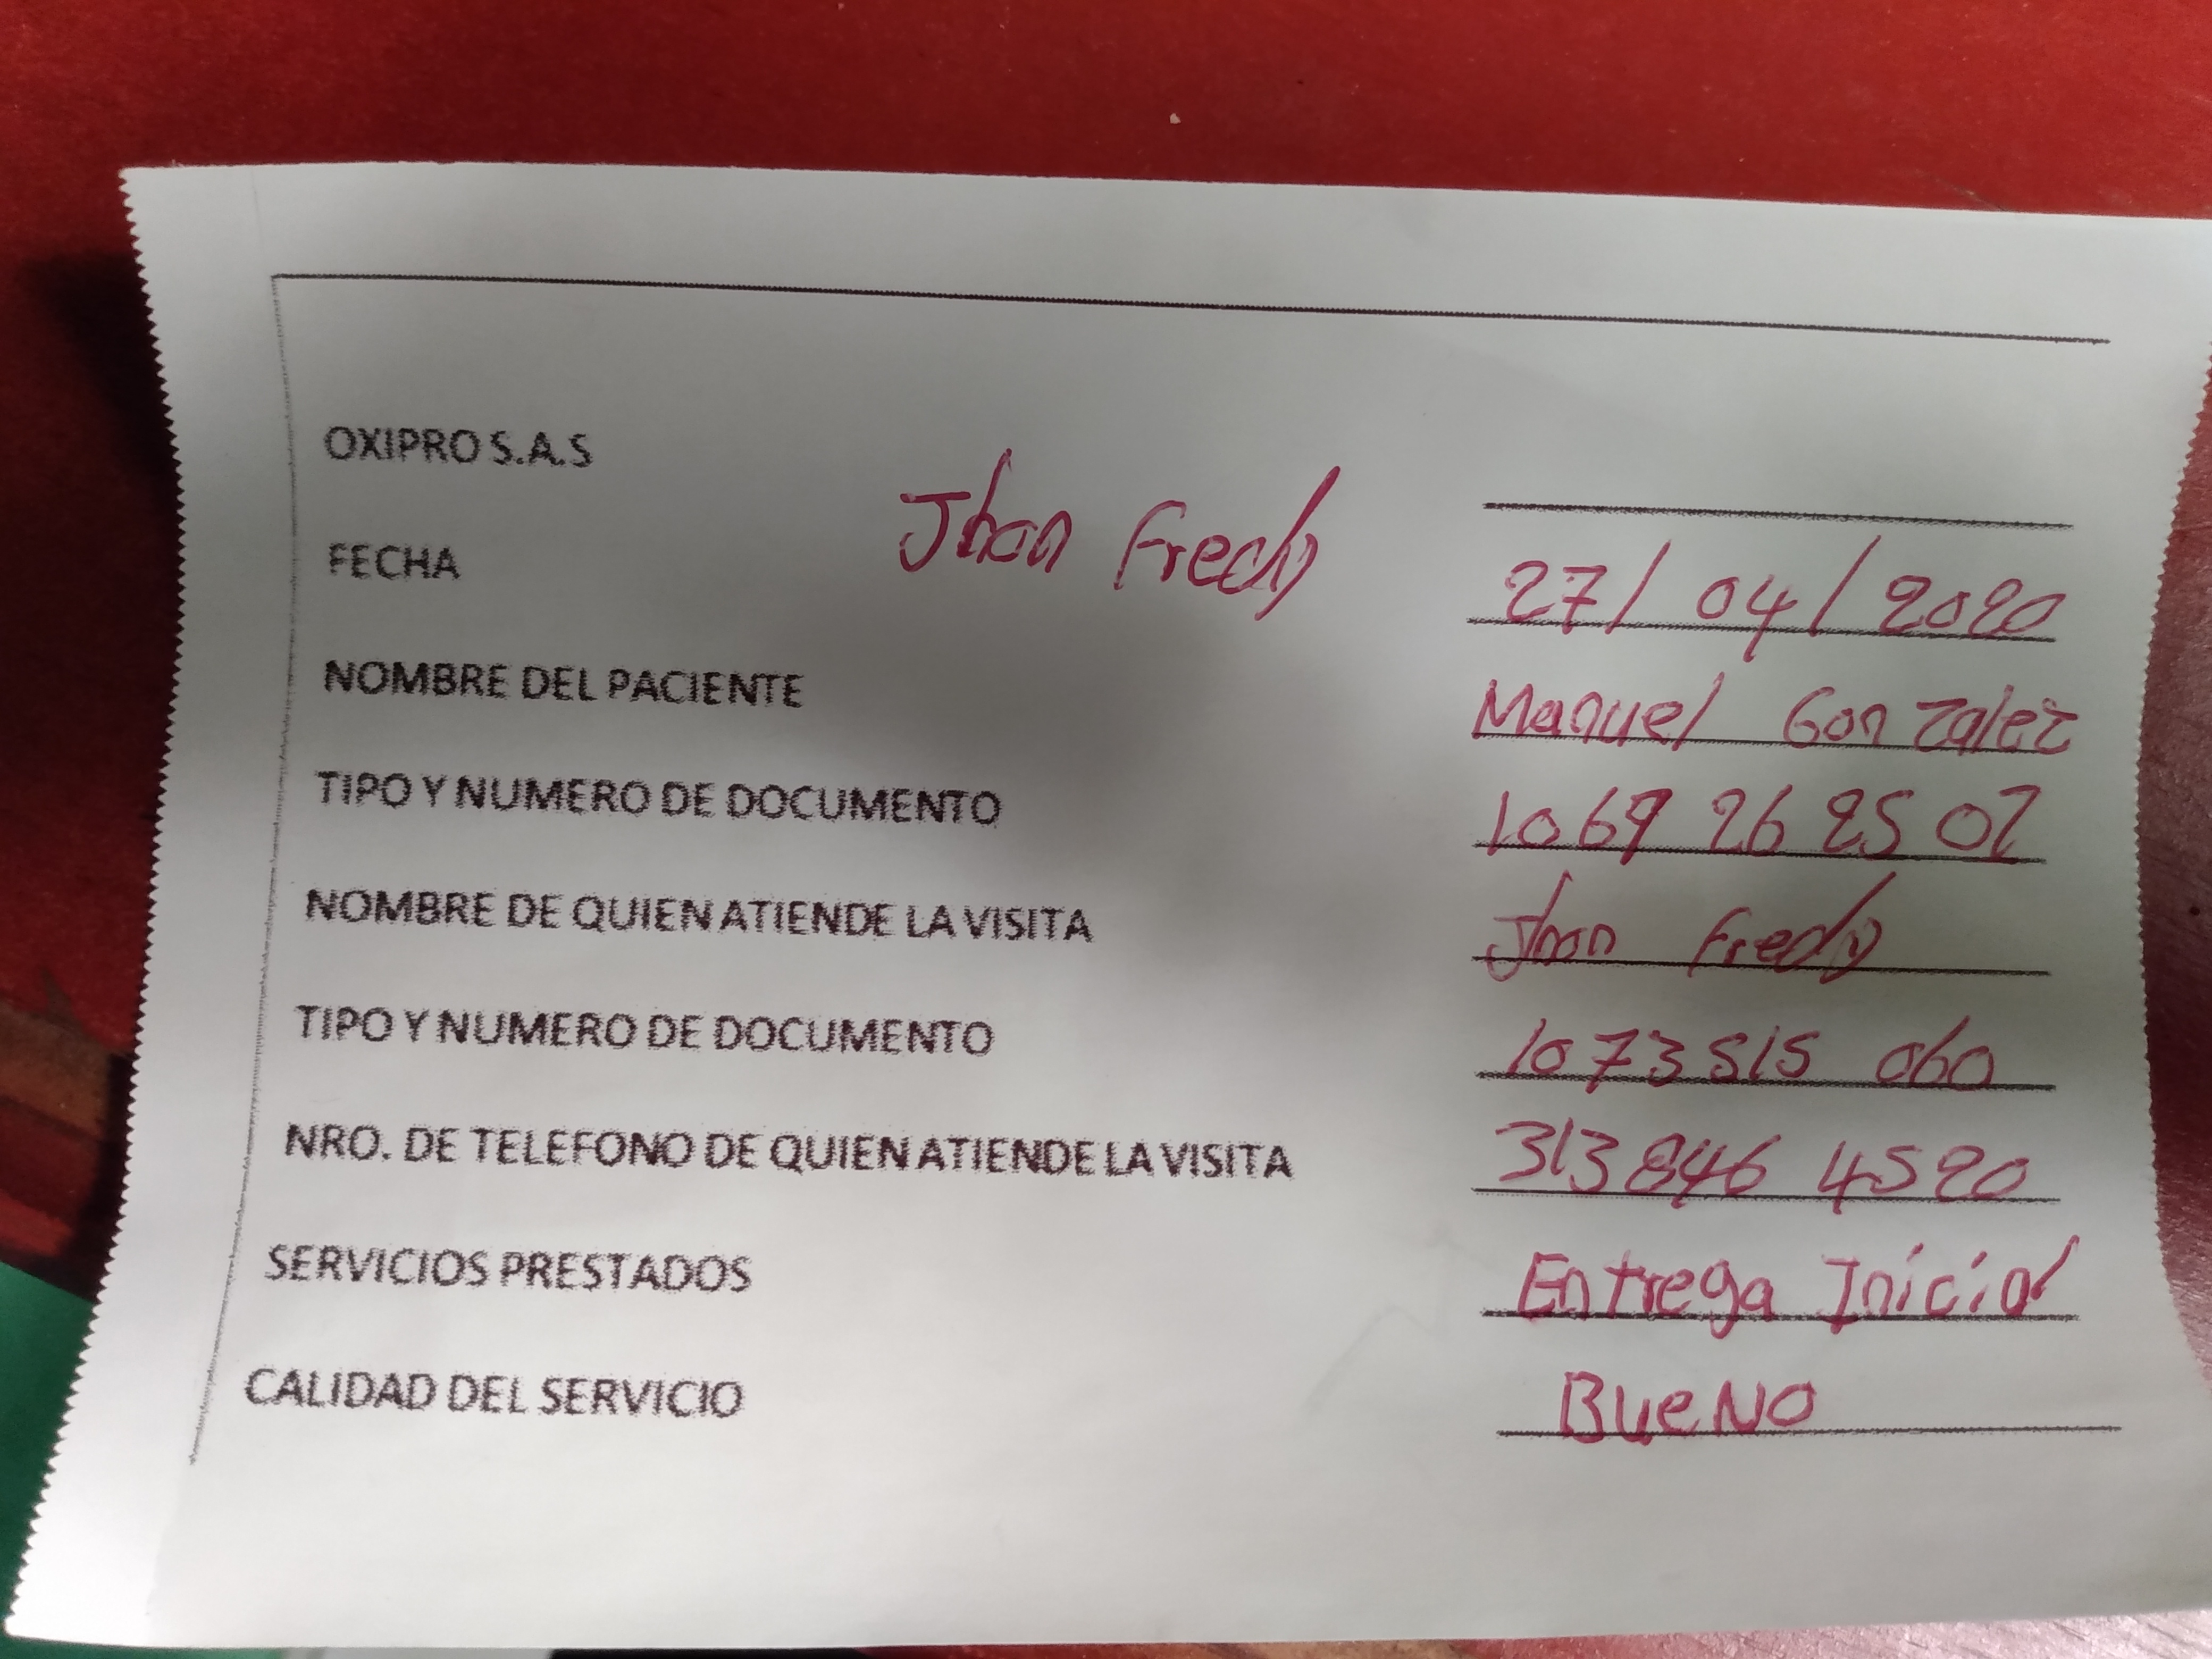 OXIPRO S.A.S
Jhon Fredy
FECHA 27/04/2020
NOMBRE DEL PACIENTE Manuel Gonzalez
TIPO Y NUMERO DE DOCUMENTO 1069 26 25 02
NOMBRE DE QUIEN ATIENDE LA VISITA Jhon Fredy
TIPO Y NUMERO DE DOCUMENTO 1073515 060
NRO. DE TELEFONO DE QUIEN ATIENDE LA VISITA 313846 4520
SERVICIOS PRESTADOS Entrega Inicial
CALIDAD DEL SERVICIO BueNO